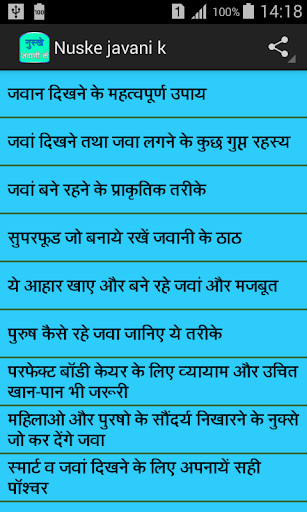 100% 14:18
नुस्खे
Nuske javani k
जवान दिखने के महत्वपूर्ण उपाय
जवां दिखने तथा जवा लगने के कुछ गुप्त रहस्य
जवां बने रहने के प्राकृतिक तरीके
सुपरफूड जो बनाये रखें जवानी के ठाठ
ये आहार खाए और बने रहे जवां और मजबूत
पुरुष कैसे रहे जवा जानिए ये तरीके
परफेक्ट बॉडी केयर के लिए व्यायाम और उचित
खान-पान भी जरूरी
महिलाओ और पुरषो के सौंदर्य निखारने के नुक्से
जो कर देंगे जवा
स्मार्ट व जवां दिखने के लिए अपनायें सही
पॉश्चर